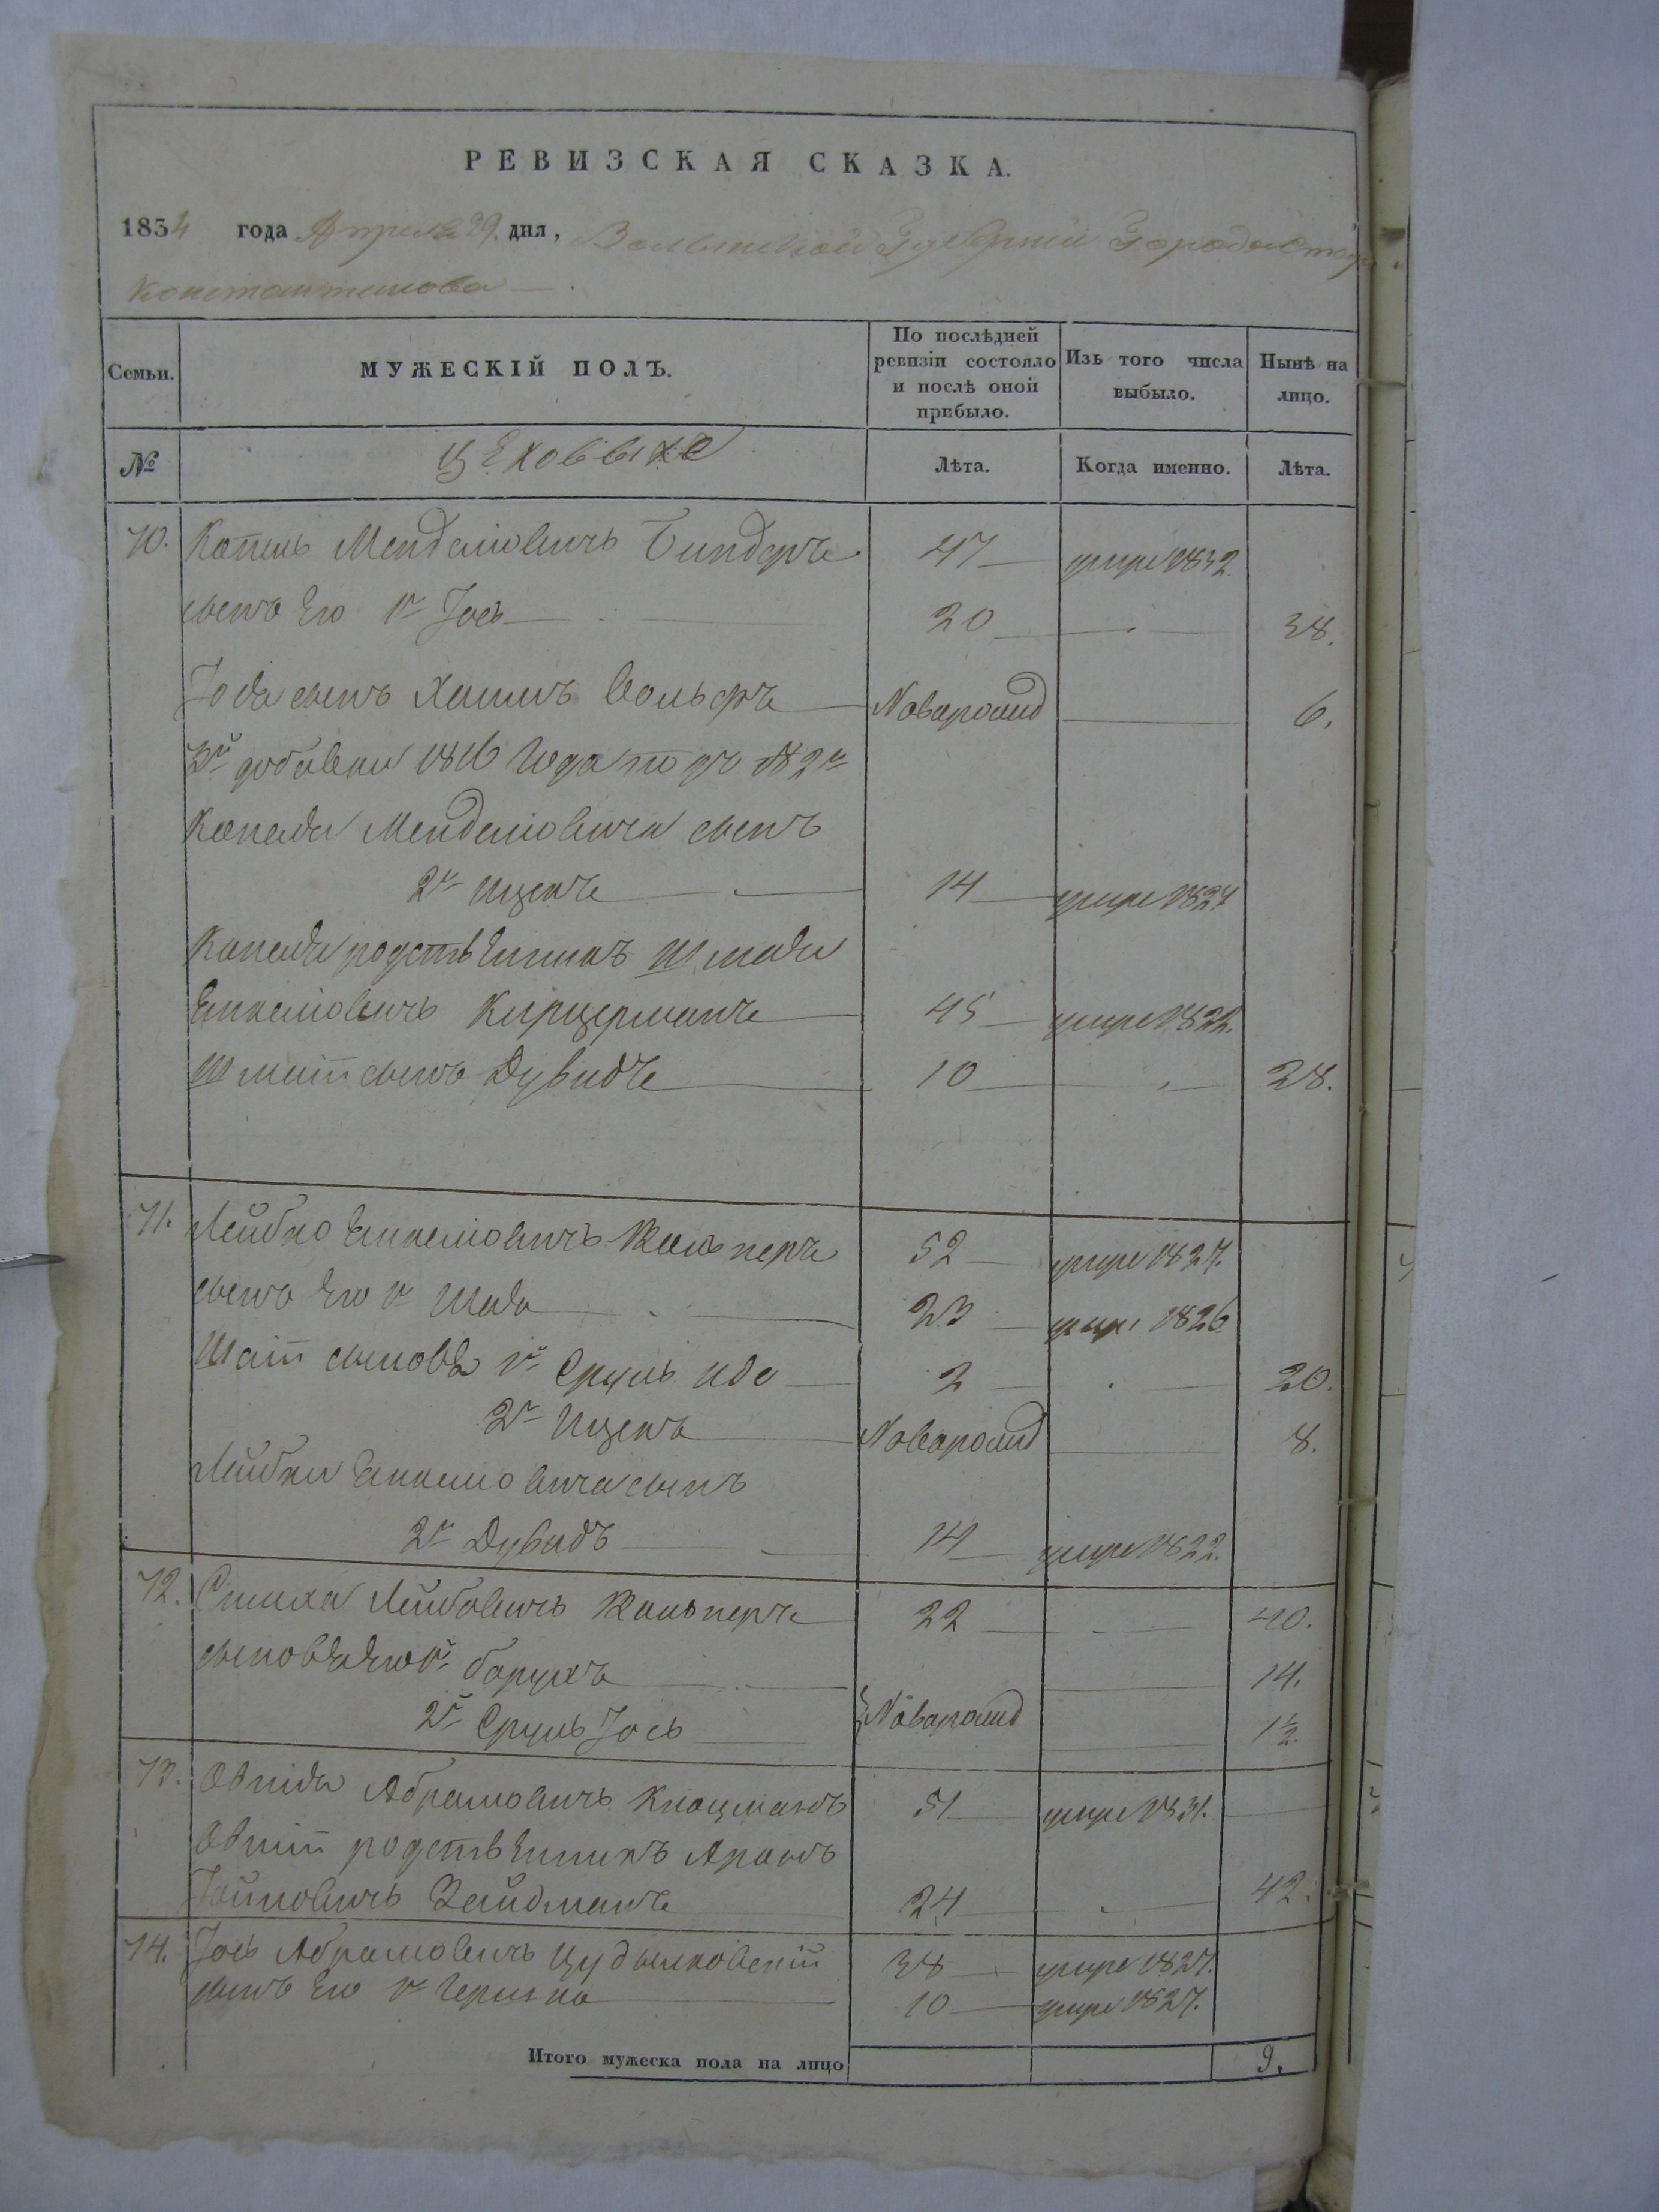 РЕВИЗСКАЯ СКАЗКА.
1834 года Апреля 29. дня, Волынской Губернии Города Старо
константинова
Семьи. МУЖЕСКІЙ ПОЛЪ. По послѣдней ревизіи состояло и послѣ оной прибыло. Изъ того числа выбыло. Нынѣ на лицо.
№ Цеховые Лѣта. Когда именно. Лѣта.
70. Копель Менделіовичъ Биндеръ 47 умре 1832
сынъ Его 1й Іось 20 38.
сынъ Хаимъ Вольфъ Новорожд 6.
1816 Года по
Копеля Менделіовича сынъ
2й Ицекъ 14 умре 1827
Копеля родственникъ Шмаля
Енкеліовичъ Кирцерманъ 45 умре 1822.
сынъ Дувидъ 10 28.
71. Лейбко Енкеліовичъ Кальперъ 52 умре 1827.
сынъ Его 1й Шая 23 умре 1826
сыновья 1й Сруль Иде 2 20.
2й Ицекъ Новорожд 8.
Лейбки Енкеліовича сынъ
2й Дувидъ 14 умре 1822.
72. Симха Лейбовичъ Кальперъ 22 40.
сыновья Его 1й Борухъ 14.
2й Сруль Іось Новорожд 1½
73. Абрамовичъ Клоцманъ 51 умре 1831.
родственникъ Аронъ
Зейдманъ 24 42.
74. Іось Абрамовичъ 38 умре 1827.
сынъ Его 1й Гершко 10 умре 1827.
Итого мужеска пола на лицо 9.